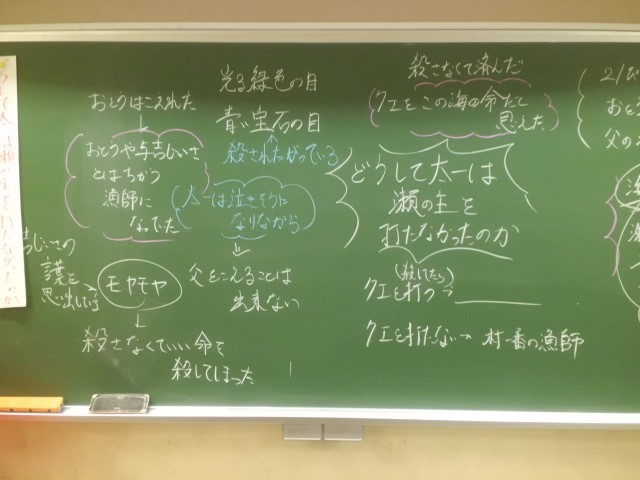 殺さなくて済んだ
クエをこの海の命だと
思えた
どうして太一は
瀬の主を
打たなかったのか
(殺していたら)
クエを打つ→
クエを打たない→ 村一番の漁師
光る緑色の目
青い宝石の目
殺されたがっている
太一は泣きそうに
なりながら
父をこえることは
出来ない
おとうはこえられた
おとうや与吉じいさ
とはちがう
漁師に
なっていた
吉じいさの
護を
思い出している
モヤモヤ
殺さなくていい命を
殺してしまった
父の